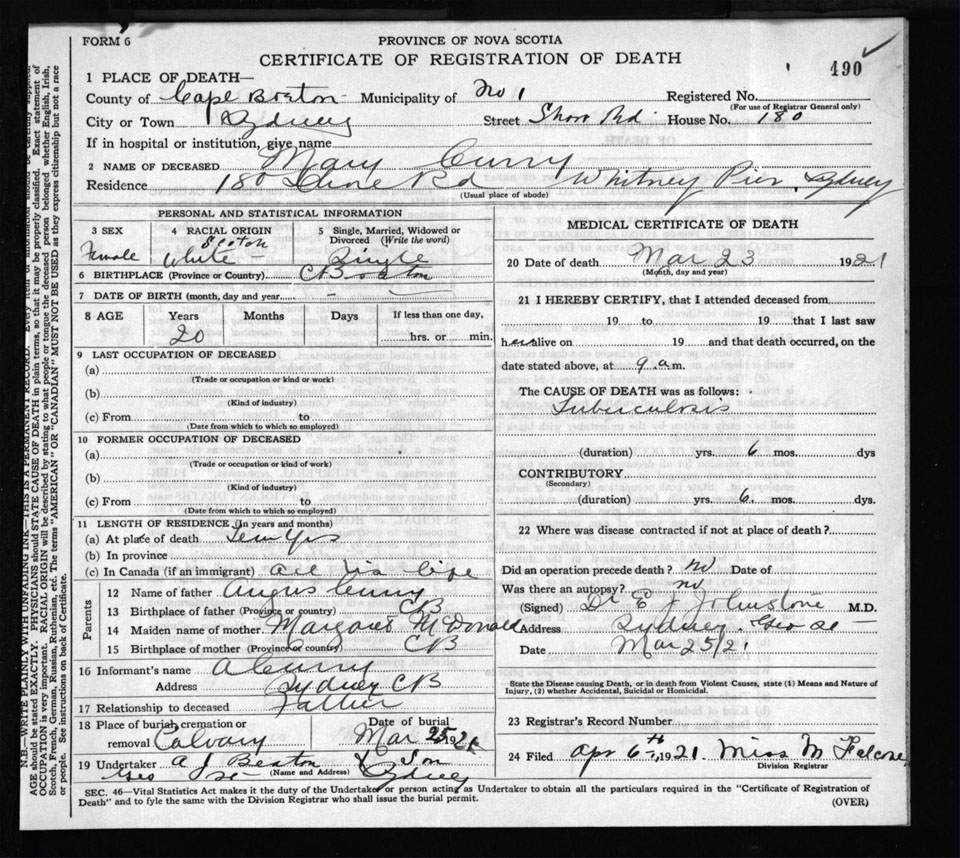 FORM 6
PROVINCE OF NOVA SCOTIA
CERTIFICATE OF REGISTRATION OF DEATH
490
1 PLACE OF DEATH—
County of Cape Breton Municipality of No 1 Registered No.
(For use of Registrar General only)
City or Town Sydney Street Shore Rd House No. 180
If in hospital or institution, give name
2 NAME OF DECEASED Mary Curry
Residence 180 Rd Whitney Pier, Sydney
(Usual place of abode)
PERSONAL AND STATISTICAL INFORMATION
3 SEX 4 RACIAL ORIGIN 5 Single, Married, Widowed or Divorced (Write the word)
Female Scotch White Single
6 BIRTHPLACE (Province or Country) CBreton
7 DATE OF BIRTH (month, day and year)
8 AGE Years Months Days If less than one day,
20 hrs. or min.
9 LAST OCCUPATION OF DECEASED
(a)
(Trade or occupation or kind or work)
(b)
(Kind of industry)
(c) From to
(Date from which to which so employed)
10 FORMER OCCUPATION OF DECEASED
(a)
(Trade or occupation or kind of work)
(b)
(Kind of industry)
(c) From to
(Date from which to which so employed)
11 LENGTH OF RESIDENCE (In years and months)
(a) At place of death Ten Yrs
(b) In province
(c) In Canada (if an immigrant) all his life
Parents
12 Name of father Angus Curry
13 Birthplace of father (Province or country) CB
14 Maiden name of mother Margaret McDonald
15 Birthplace of mother (Province or country) CB
16 Informant's name A Curry
Address Sydney CB
17 Relationship to deceased Father
18 Place of burial, cremation or removal Calvary Date of burial Mar 25 1921
19 Undertaker A J Beaton & Son
(Name and Address)
Geo St Sydney
MEDICAL CERTIFICATE OF DEATH
20 Date of death Mar 23 1921
(Month, day and year)
21 I HEREBY CERTIFY, that I attended deceased from
19 to 19 that I last saw
her alive on 19 and that death occurred, on the
date stated above, at 9 a.m.
The CAUSE OF DEATH was as follows:
Tuberculosis
(duration) yrs. 6 mos. dys
CONTRIBUTORY
(Secondary)
(duration) yrs. 6 mos. dys.
22 Where was disease contracted if not at place of death?
Did an operation precede death? no Date of
Was there an autopsy? no
(Signed) Dr E J Johnstone M.D.
Address Sydney Geo St
Date Mar 25/21
State the Disease causing Death, or in death from Violent Causes, state (1) Means and Nature of Injury, (2) whether Accidental, Suicidal or Homicidal.
23 Registrar's Record Number
24 Filed Apr 6th, 1921. Miss M Falconer
Division Registrar
SEC. 46—Vital Statistics Act makes it the duty of the Undertaker or person acting as Undertaker to obtain all the particulars required in the "Certificate of Registration of
Death" and to fyle the same with the Division Registrar who shall issue the burial permit.
(OVER)
N.B.—WRITE PLAINLY WITH UNFADING INK—THIS IS A PERMANENT RECORD. Every item of information should be carefully supplied.
AGE should be stated EXACTLY. PHYSICIANS should STATE CAUSE OF DEATH in plain terms, so that it may be properly classified. Exact statement of
OCCUPATION is very important. RACIAL ORIGIN will be described by stating to what people or tongue the deceased person belonged whether English, Irish,
Scotch, French, German, Russian, Ruthenian, etc. The terms "AMERICAN" OR "CANADIAN" MUST NOT BE USED as they express citizenship but not a race
or people. See instructions on back of Certificate.